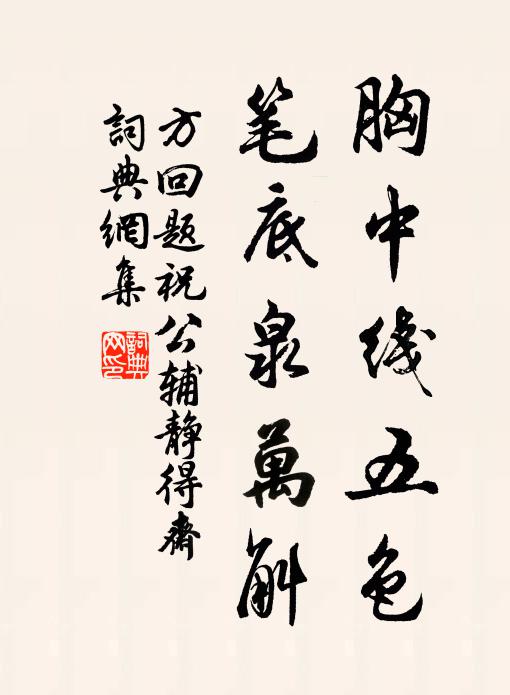 胸中线五色
笔底泉萬斛
方回题祝公辅静得斋
詞典網集
詞典网印